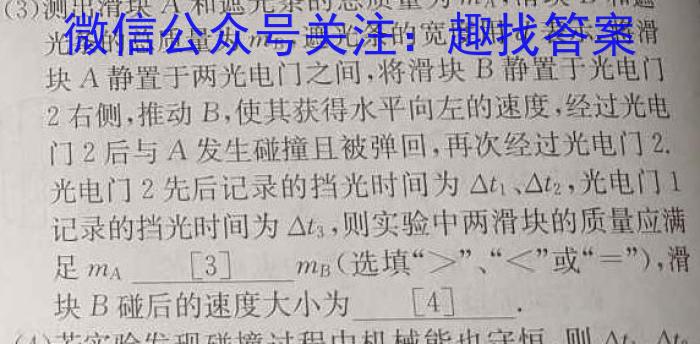 (3)测出滑块 A 和遮光条的总质量为 mA,滑块 B 和遮
微信公众号关注：趣找答案
光条的总质量为 mB,遮光条的宽
滑
块 A 静置于两光电门之间,将滑块 B 静置于光电门
2 右侧,推动 B,使其获得水平向左的速度,经过光电
门 2 后与 A 发生碰撞且被弹回,再次经过光电门 2.
光电门 2 先后记录的挡光时间为 Δt₁、Δt₂,光电门 1
记录的挡光时间为 Δt₃,则实验中两滑块的质量应满
足 mA [3] mB(选填“>”、“<”或“=”),滑
块 B 碰后的速度大小为 [4] .
(4)若实验发现碰撞过程中机械能也守恒,则 Δt₁、Δt₂